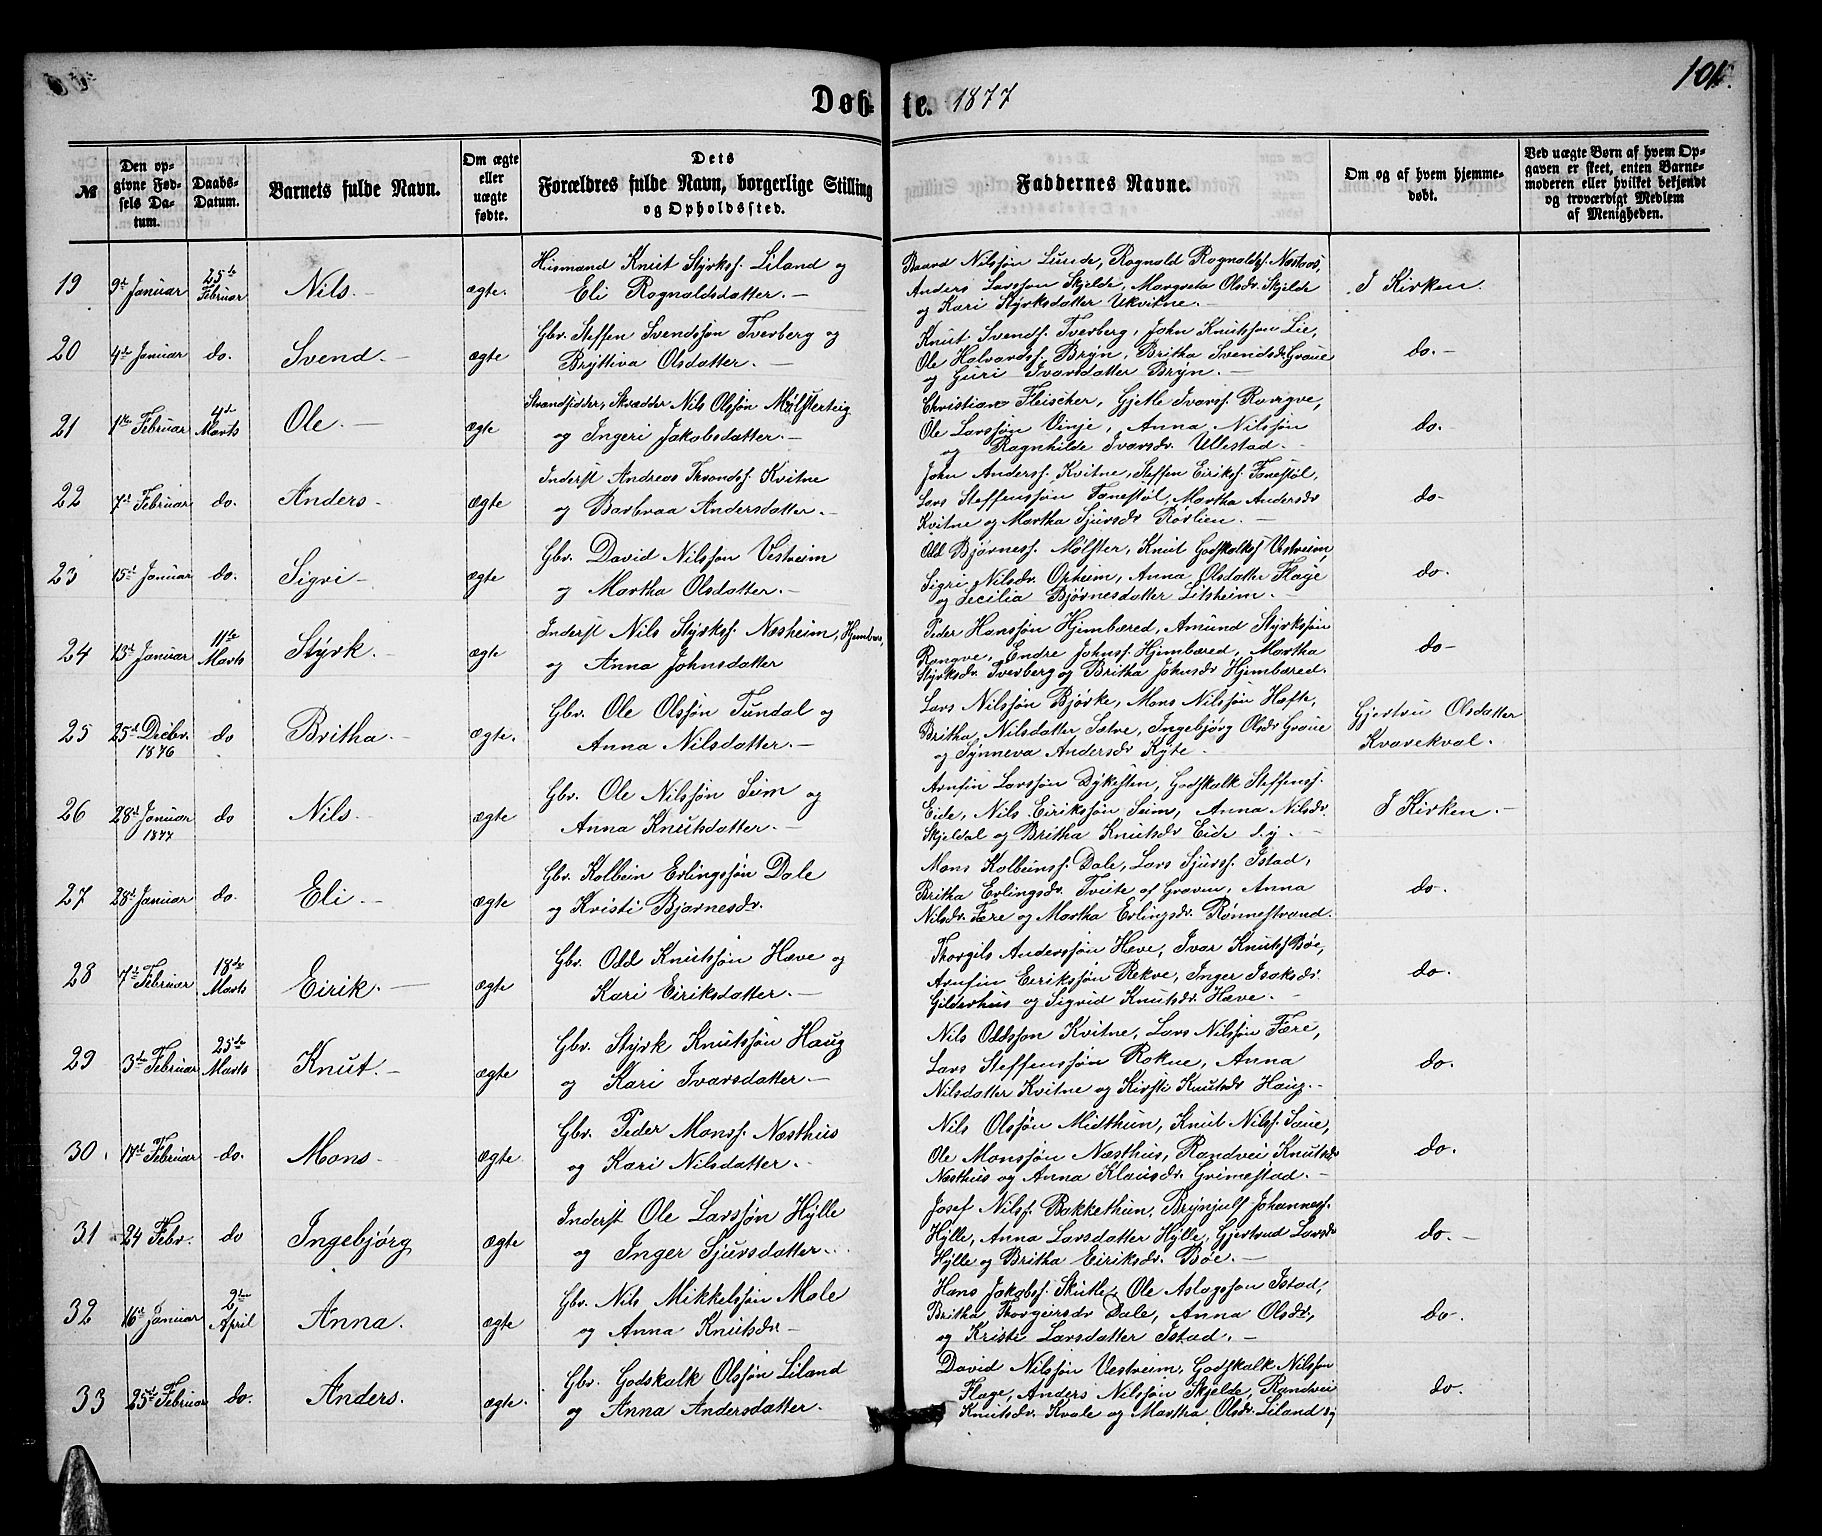 Døbte. 1877
101.
№
Den op-
givne Fød-
sels Da-
tum.
Daabs-
Datum.
Barnets fulde Navn.
Om ægte
eller
uægte
fødte.
Dets
Forældres fulde Navn, borgerlige Stilling
og Opholdssted.
Faddernes Navne.
Om og af hvem hjemme-
døbt.
Ved uægte Børn af hvem Op-
gaven er skeet, enten Barne-
moderen eller hvilket bekjendt
og troværdigt Medlem
af Menigheden.
19
9de Januar
25de Februar
Nils.
ægte.
Husmand Knut Styrksf. Liland og
Eli Rognaldsdatter.
Baard Nilssøn Lunde, Rognald Rognaldsf. Næstaas,
Anders Larssøn Skjelde, Margreta Olsdr. Skjelde
og Kari Styrksdatter Ukvitne.
I Kirken.
20
4de Januar
do.
Svend.
ægte
Gbr. Steffen Svendssøn Tverberg og
Bryttiva Olsdatter.
Knut Svendsf. Tverberg, John Knutssøn Lie,
Ole Halvardsf. Bryn, Britha Svendsdr Graue
og Guri Ivarsdatter Bryn.
do.
21
1ste Februar
4de Marts
Ole.
ægte
Strandsidder, Skrædder Nils Olssøn Mølsterteig
og Ingeri Jakobsdatter.
Christian Fleischer, Gjetle Ivarsf. Rongve,
Ole Larssøn Vinje, Anna Nilssøn
og Ragnhilde Ivarsdr. Ullestad.
do.
22
7de Februar
do.
Anders
ægte
Inderst Andreas Throndsf. Kvitne
og Barbraa Andersdatter.
John Andersf. Kvitne, Steffen Eiriksf. Fænestøl,
Lars Steffenssøn Fænestøl, Martha Andersdr
Kvitne og Martha Sjursdr Rørlien.
do
23
15de Januar
do.
Sigri
ægte
Gbr. David Nilssøn Vestreim
og Martha Olsdatter.
Odd Bjørnesf. Mølster, Knut Godskalksf Vestreim
Sigri Nilsdr. Opheim, Anna Olsdatter Flage
og Cecilia Bjørnesdatter Litsheim.
do.
24
13de Januar
11te Marts
Styrk.
ægte
Inderst Nils Styrksf. Næsheim, Hjembær,
og Anna Johnsdatter
Peder Hanssøn Hjembæred, Amund Styrkssøn
Rongve, Endre Johnsf. Hjembæred, Martha
Styrksdr. Tverberg og Britha Johnsdr Hjembæred.
do
25
25de Decbr. 1876
do
Britha.
ægte.
Gbr. Ole Olssøn Tundal og
Anna Nilsdatter.
Lars Nilssøn Bjørke, Mons Nilssøn Hæfte,
Britha Nilsdatter Sætve, Ingebjørg Olsdr Graue
og Synneva Andersdr Kyte
Gjertru Olsdatter
Kvarekval.
26
28de Januar 1877
do
Nils.
ægte
Gbr. Ole Nilssøn Seim og
Anna Knutsdatter.
Arnfin Larssøn Dykesten, Godskalk Steffensf.
Eide, Nils Eirikssøn Seim, Anna Nilsdr.
Skjeldal og Britha Knutsdr Eide
I Kirken.
27
28de Januar
do.
Eli.
ægte
Gbr. Kolbein Erlingssøn Dale
og Kristi Bjørnesdr.
Mons Kolbeinsf. Dale, Lars Sjursf. Istad,
Britha Erlingsdr. Tveite af Graven, Anna
Nilsdr. Fære og Martha Erlingsdr. Rønnestrand.
do.
28
7de Februar
18de Marts
Eirik.
ægte
Gbr. Odd Knutssøn Hæve og
Kari Eiriksdatter.
Thorgils Anderssøn Hæve, Ivar Knutsf Bøe,
Arnfin Eirikssøn Rekve, Inger Isaksdr
Gilderhus og Sigrid Knutsdr. Hæve.
do.
29
3de Februar
25de Marts
Knut.
ægte
Gbr. Styrk Knutssøn Haug
og Kari Ivarsdatter.
Nils Oddssøn Kvitne, Lars Nilssøn Fære,
Lars Steffenssøn Rokne, Anna
Nilsdatter Kvitne og Kirsti Knutsdr Haug.
do.
30.
17de Februar
do.
Mons
ægte
Gbr. Peder Monsf. Næsthus
og Kari Nilsdatter.
Nils Olssøn Midthun, Knut Nilsf. Saue,
Ole Monssøn Næsthus, Randvei Knutsdr
Næsthus og Anna Klausdr. Grimestad.
do.
31
24 Febr.
do
Ingebjørg
ægte
Inderst Ole Larssøn Hylle
og Inger Sjursdatter.
Josef Nilsf. Bakkethun, Brynjulf Johannesf.
Hylle, Anna Larsdatter Hylle, Gjertrud Larsdr
Hylle og Britha Eiriksdr. Bøe.
do.
32
16de Januar
2den April
Anna.
ægte
Gbr. Nils Mikkelssøn Male
og Anna Knutsdr
Hans Jakobsf. Skutle, Ole Aslagssøn Istad,
Britha Thorgeirsdr Dale, Anna Olsdr,
og Kristi Larsdatter Istad.
do.
33
25de Februar
do.
Anders.
ægte.
Gbr. Godskalk Olssøn Liland
og Anna Andersdatter.
David Nilssøn Vestreim, Godskalk Nilssøn
Flage, Anders Nilssøn Skjelde, Randvei
Knutsdr. Kvale og Martha Olsdr. Liland
do.